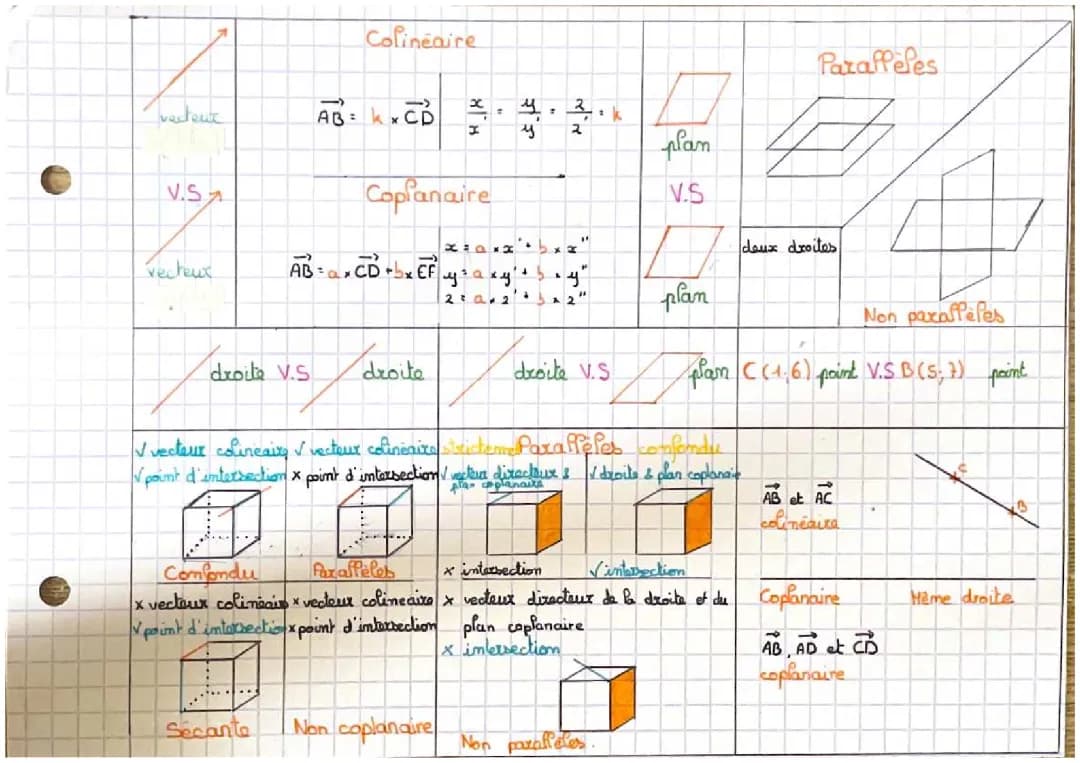 Colinéaire
vecteur
AB = k × CD
x/x' = y/y' = z/z' = k
V.S
Coplanaire
vecteur
AB = a × CD + b × EF
x = a × x' + b × x"
y = a × y' + b × y"
z = a × z' + b × z"
plan
V.S
plan
Parallèles
deux droites
Non parallèles
droite V.S droite
droite V.S plan
C(1;6) point V.S B(5;7) point
√ vecteur colinéaire
√ point d'intersection
Confondu
√ vecteur colinéaire
× point d'intersection
Parallèles
× vecteur colinéaire
√ point d'intersection
Sécante
× vecteur colinéaire
× point d'intersection
Non coplanaire
strictement Parallèles confondu
√ vecteur directeur &
plan coplanaire
× intersection
√ droite & plan coplanair
√ intersection
× vecteur directeur de la droite et du
plan coplanaire
× intersection
Non parallèles.
AB et AC
colinéaire
C
B
Coplanaire
Même droite
AB, AD et CD
coplanaire